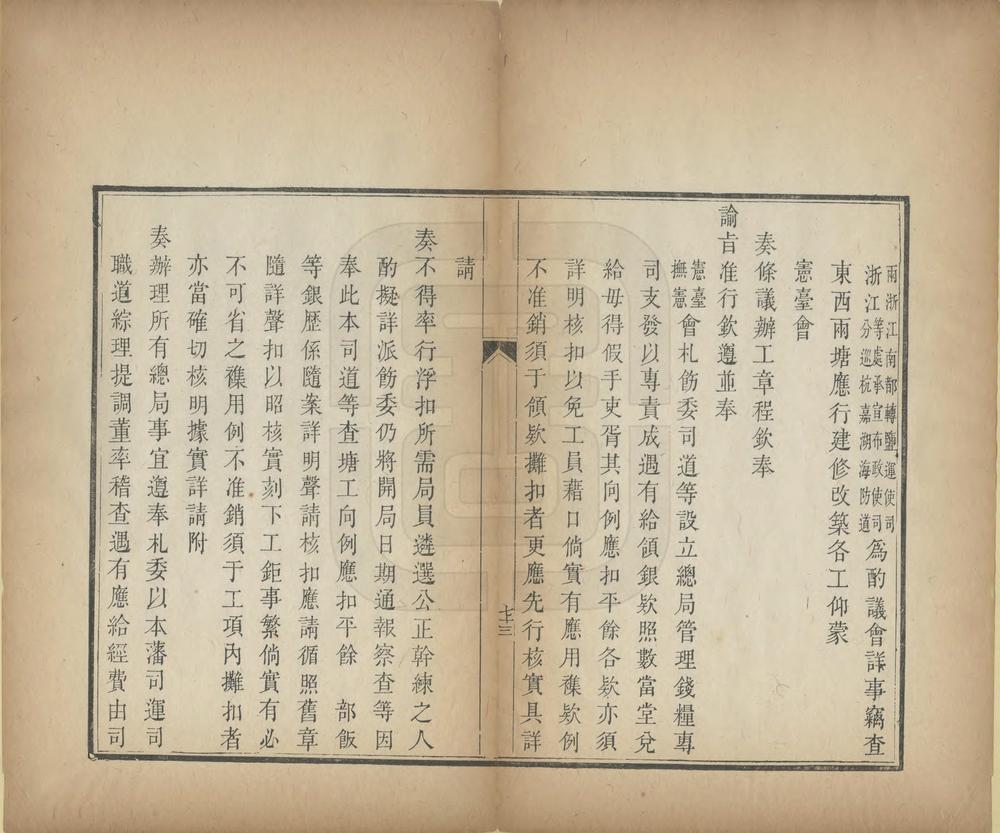 兩浙江南部轉鹽運使司
浙江等處承宣布政使司
分巡杭嘉湖海防道
為酌議會詳事竊查
東西兩塘應行建修改築各工仰蒙
憲臺會
奏條議辦工章程欽奉
諭旨准行欽遵並奉
憲臺
撫憲
會札飭委司道等設立總局管理錢糧專
司支發以專責成遇有給領銀欵照數當堂兌
給毋得假手吏胥其向例應扣平餘各欵亦須
詳明核扣以免工員藉口倘實有應用穕欵例
不准銷須于領欵攤扣者更應先行核實具詳
七三
請
奏不得率行浮扣所需局員遴選公正幹練之人
酌擬詳派飭委仍將開局日期通報察查等因
奉此本司道等查塘工向例應扣平餘 部飯
等銀歷係隨案詳明聲請核扣應請循照舊章
隨詳聲扣以昭核實刻下工鉅事繁倘實有必
不可省之穕用例不准銷須于工項內攤扣者
亦當確切核明據實詳請附
奏辦理所有總局事宜遵奉札委以本藩司運司
職道綜理提調董率稽查遇有應給經費由司